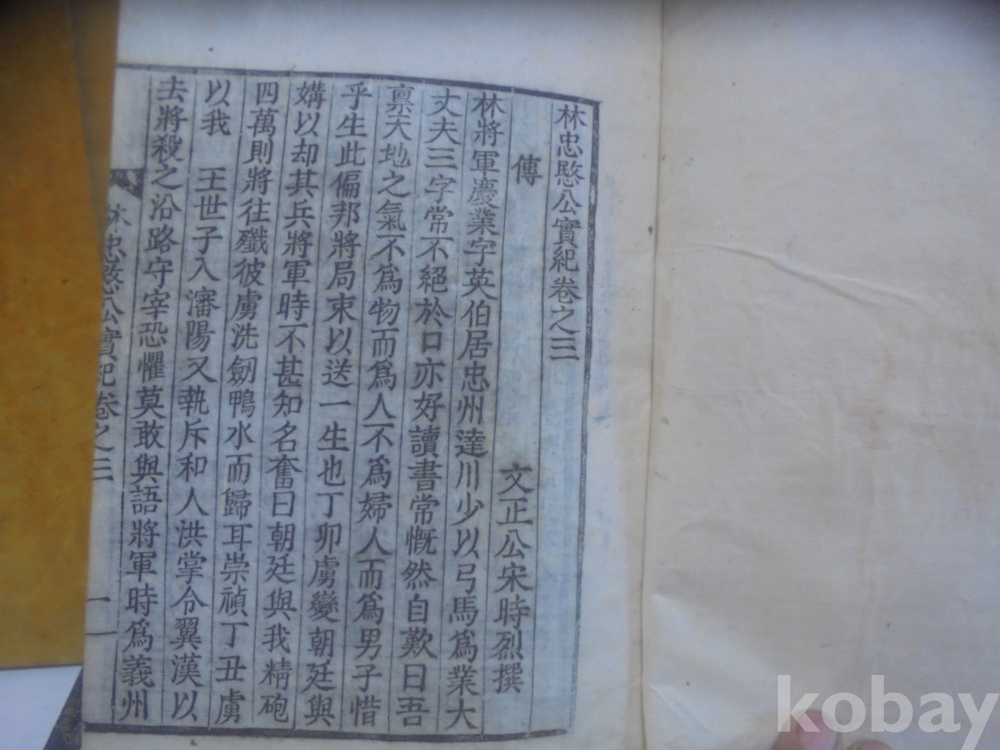 林忠愍公實紀卷之三
傳
文正公宋時烈撰
林將軍慶業字英伯居忠州達川少以弓馬爲業大
丈夫三字常不絕於口亦好讀書常慨然自歎曰吾
禀天地之氣不爲物而爲人不爲婦人而爲男子惜
乎生此偏邦將局束以送一生也丁卯虜變朝廷與
媾以却其兵將軍時不甚知名奮曰朝廷與我精砲
四萬則將往殲彼虜洗劒鴨水而歸耳崇禎丁丑虜
以我 王世子入瀋陽又執斥和人洪掌令翼漢以
去將殺之沿路守宰恐懼莫敢與語將軍時爲義州
林忠愍公實紀卷之三 一
kobay